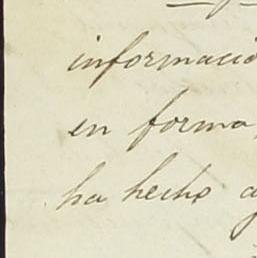 informació
en forma
ha hecho a